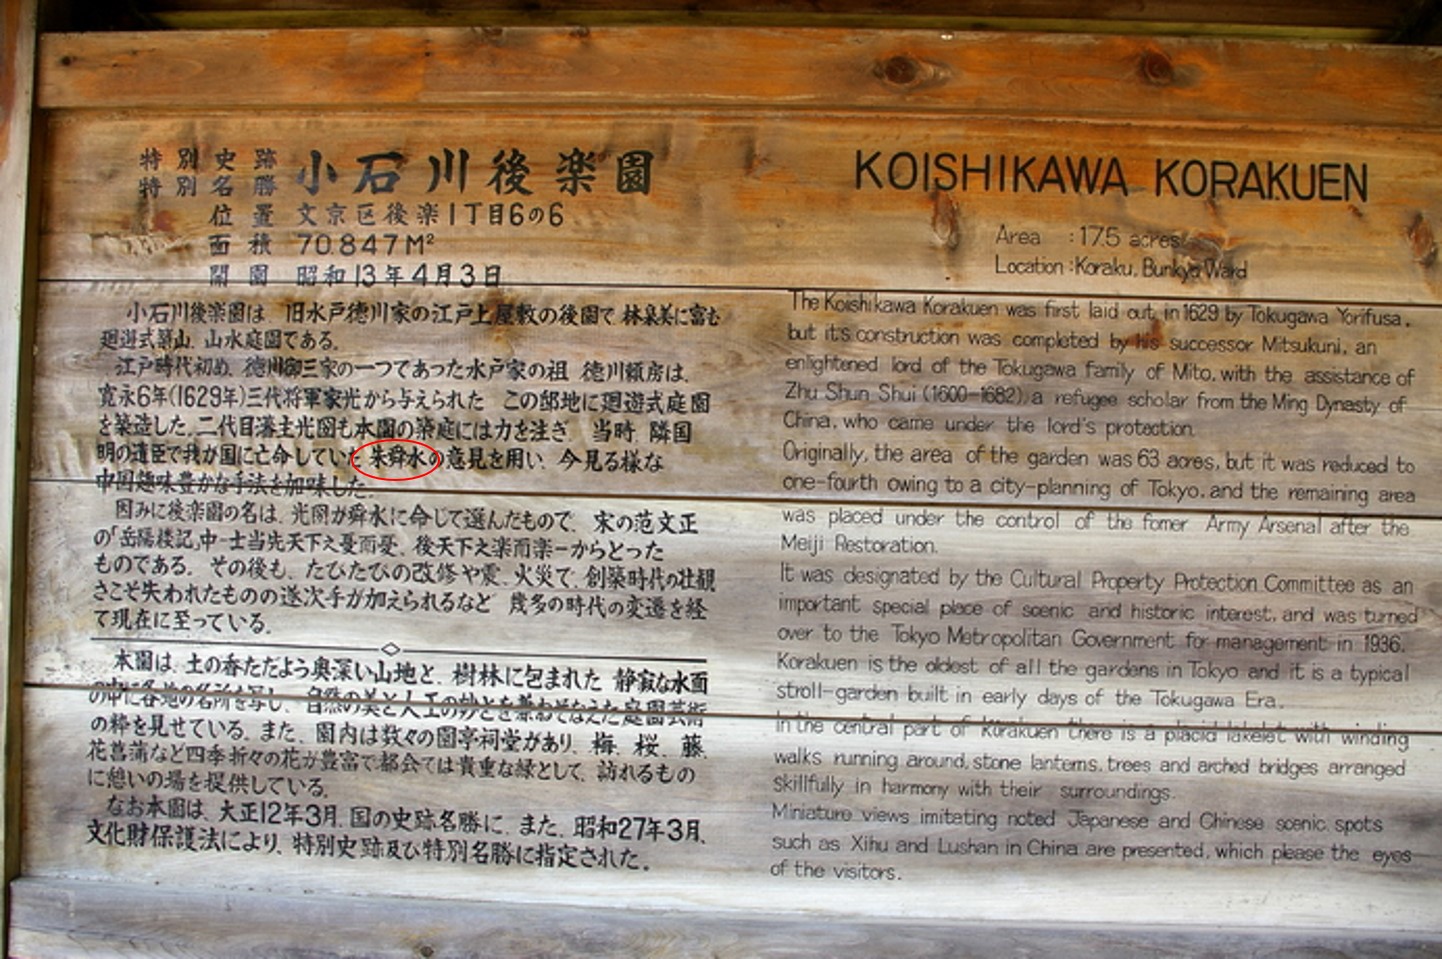 特別史跡
特別名勝
小石川後楽園
位置 文京区後楽1丁目6の6
面積 70.847M²
開園 昭和13年4月3日
小石川後楽園は、旧水戸徳川家の江戸上屋敷の後園で、林泉美に富む
廻遊式築山、山水庭園である。
江戸時代初め、徳川御三家の一つであった水戸家の祖 徳川頼房は、
寛永6年(1629年)三代将軍家光から与えられた この邸地に廻遊式庭園
を築造した。二代目藩主光圀も本園の築庭には力を注ぎ 当時 隣国
明の遺臣で我が国に亡命していた朱舜水の意見を用い 今見る様な
中国趣味豊かな手法を加味した。
因みに後楽園の名は、光圀が舜水に命じて選んだもので、宋の范文正
の「岳陽楼記」中−士当先天下之憂而憂、後天下之楽而楽−からとった
ものである。その後も、たびたびの改修や震、火災で、創築時代の壮観
さこそ失われたものの逐次手が加えられるなど 幾多の時代の変遷を経
て現在に至っている。
本園は、土の香ただよう奥深い山地と、樹林に包まれた 静寂な水面
の中に各地の名所を写し、自然の美と人工の妙とを兼ねそなえた庭園芸術
の粋を見せている。また、園内は数々の園亭祠堂があり、梅、桜、藤、
花菖蒲など四季折々の花が豊富で都会では貴重な緑として、訪れるもの
に憩いの場を提供している。
なお本園は、大正12年3月、国の史跡名勝に、また、昭和27年3月、
文化財保護法により、特別史跡及び特別名勝に指定された。
KOISHIKAWA KORAKUEN
Area : 17.5 acres
Location : Koraku, Bunkyo Ward
The Koishikawa Korakuen was first laid out in 1629 by Tokugawa Yorifusa,
but it's construction was completed by his successor Mitsukuni, an
enlightened lord of the Tokugawa family of Mito, with the assistance of
Zhu Shun Shui (1600-1682), a refugee scholar from the Ming Dynasty of
China, who came under the lord's protection.
Originally, the area of the garden was 63 acres, but it was reduced to
one-fourth owing to a city-planning of Tokyo, and the remaining area
was placed under the control of the fomer Army Arsenal after the
Meiji Restoration.
It was designated by the Cultural Property Protection Committee as an
important special place of scenic and historic interest, and was turned
over to the Tokyo Metropolitan Government for management in 1936.
Korakuen is the oldest of all the gardens in Tokyo and it is a typical
stroll-garden built in early days of the Tokugawa Era.
In the central part of Korakuen there is a placid lakelet with winding
walks running around, stone lanterns, trees and arched bridges arranged
skillfully in harmony with their surroundings.
Miniature views imitating noted Japanese and Chinese scenic spots
such as Xihu and Lushan in China are presented, which please the eyes
of the visitors.